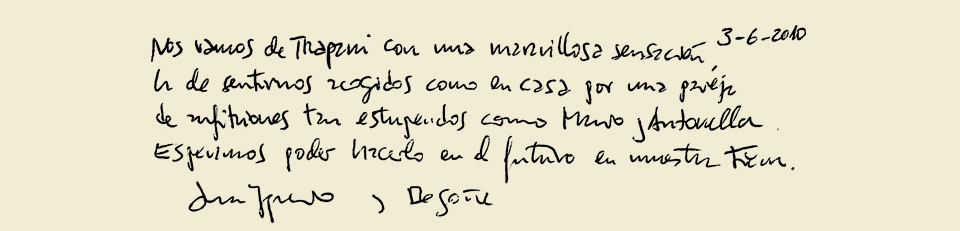 Nos vamos de Trapani con una maravillosa sensación, 3-6-2010
la de sentirnos acogidos como en casa por una pareja
de anfitriones tan estupendos como Mario y Antonella.
Esperamos poder hacerlo en el futuro en nuestra tierra.
Juan Ignacio y Begoña